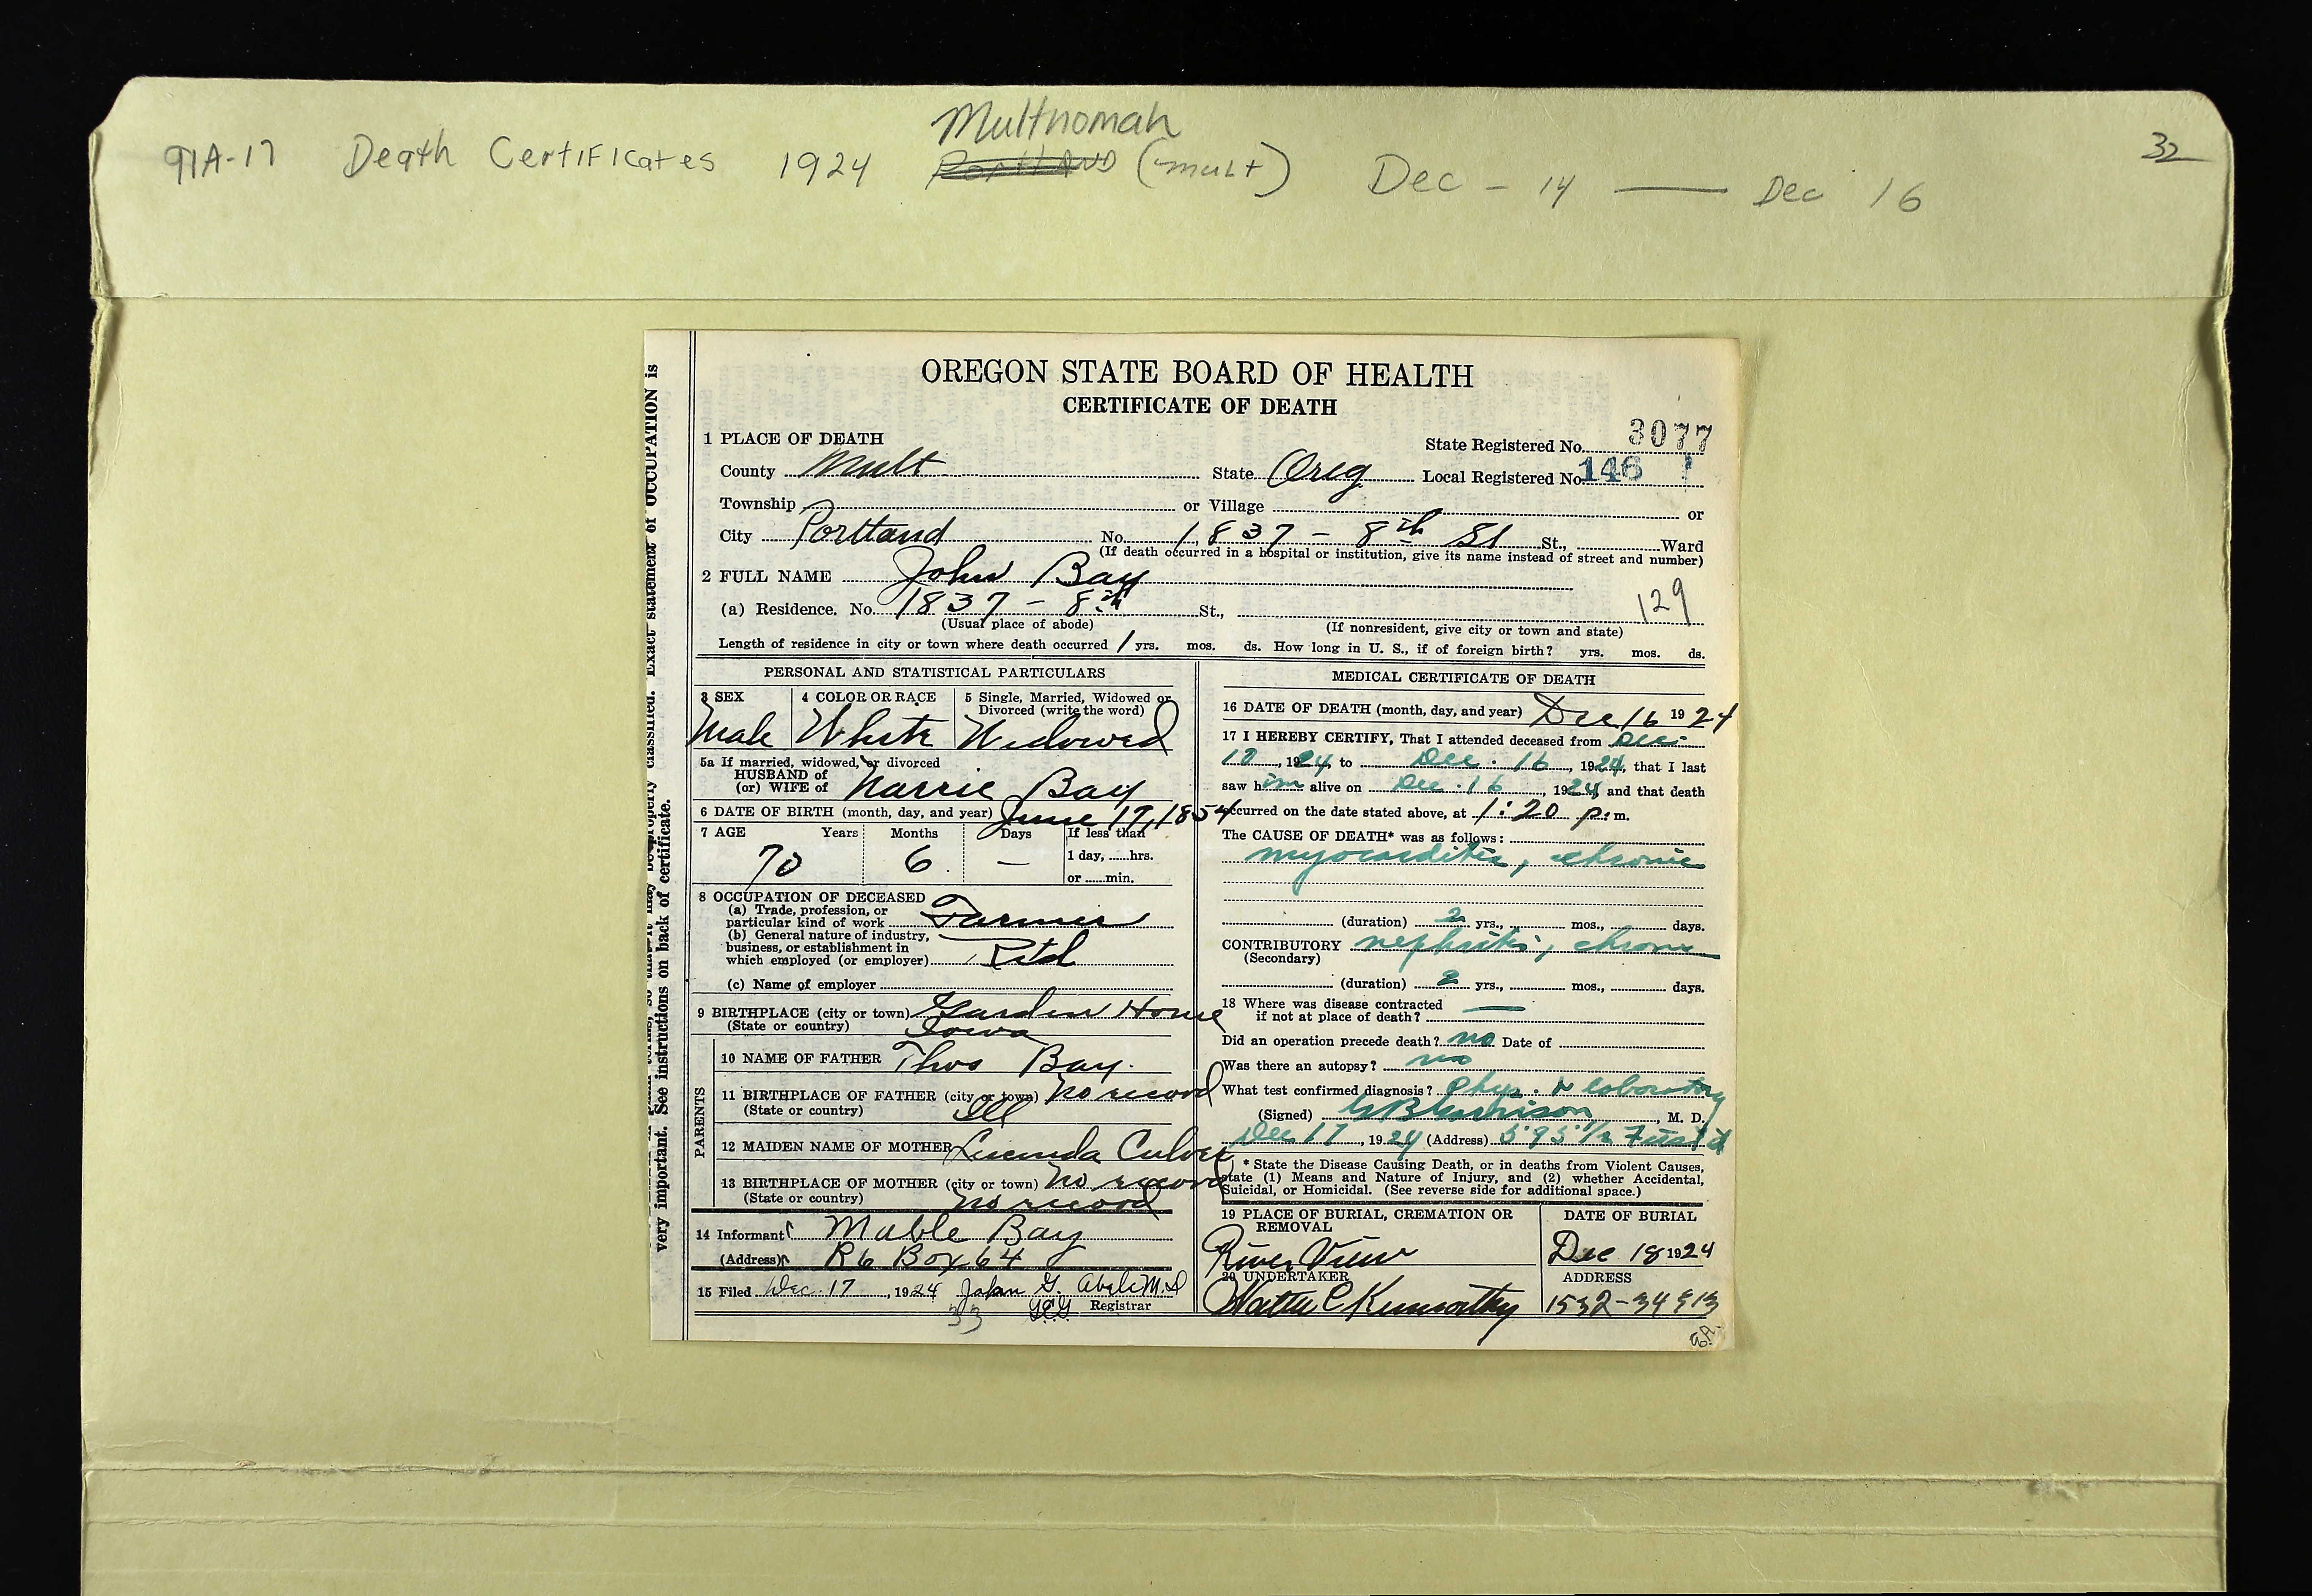 Multnomah
91A-17 Death Certificates 1924 Portland (Mult) Dec - 14 — Dec 16
32
OREGON STATE BOARD OF HEALTH
CERTIFICATE OF DEATH
1 PLACE OF DEATH
State Registered No. 3077
County Mult State Oreg Local Registered No. 146
Township or Village or
City Portland No. 1837 - 8th St St., Ward
(If death occurred in a hospital or institution, give its name instead of street and number)
2 FULL NAME John Bay
129
(a) Residence. No. 1837 - 8th St.,
(Usual place of abode) (If nonresident, give city or town and state)
Length of residence in city or town where death occurred 1 yrs. mos. ds. How long in U. S., if of foreign birth? yrs. mos. ds.
PERSONAL AND STATISTICAL PARTICULARS
3 SEX 4 COLOR OR RACE 5 Single, Married, Widowed or
Divorced (write the word)
Male White Widowed
5a If married, widowed, or divorced
HUSBAND of
(or) WIFE of Narrie Bay
6 DATE OF BIRTH (month, day, and year) June 17, 1854
7 AGE Years Months Days If less than
70 6 — 1 day, hrs.
or min.
8 OCCUPATION OF DECEASED
(a) Trade, profession, or
particular kind of work Farmer
(b) General nature of industry,
business, or establishment in
which employed (or employer) Retd
(c) Name of employer
9 BIRTHPLACE (city or town) Garden Home
(State or country) Iowa
PARENTS
10 NAME OF FATHER Thos Bay.
11 BIRTHPLACE OF FATHER (city or town) No record
(State or country) Ill
12 MAIDEN NAME OF MOTHER Lucinda Culver
13 BIRTHPLACE OF MOTHER (city or town) No record
(State or country) No record
14 Informant Mable Bay
(Address) R6 Box 64
15 Filed Dec. 17, 1924 John G. Abele M.D
33 Registrar
MEDICAL CERTIFICATE OF DEATH
16 DATE OF DEATH (month, day, and year) Dec 16 1924
17 I HEREBY CERTIFY, That I attended deceased from Dec.
10, 1924, to Dec. 16, 1924, that I last
saw him alive on Dec. 16, 1924, and that death
occurred on the date stated above, at 1:20 p. m.
The CAUSE OF DEATH* was as follows:
myocarditis, chronic
(duration) 2 yrs., mos., days.
CONTRIBUTORY nephritis, chronic
(Secondary)
(duration) 2 yrs., mos., days.
18 Where was disease contracted
if not at place of death? —
Did an operation precede death? no Date of
Was there an autopsy? no
What test confirmed diagnosis? Phys. & laboratory
(Signed) , M. D.
Dec 17, 1924 (Address) 595 1/2 First st
* State the Disease Causing Death, or in deaths from Violent Causes,
state (1) Means and Nature of Injury, and (2) whether Accidental,
Suicidal, or Homicidal. (See reverse side for additional space.)
19 PLACE OF BURIAL, CREMATION OR
REMOVAL
DATE OF BURIAL
River View Dec 18 1924
20 UNDERTAKER ADDRESS
Walter C Kenworthy 1532-34 E 13
very important. See instructions on back of certificate.
properly classified. Exact statement of OCCUPATION is